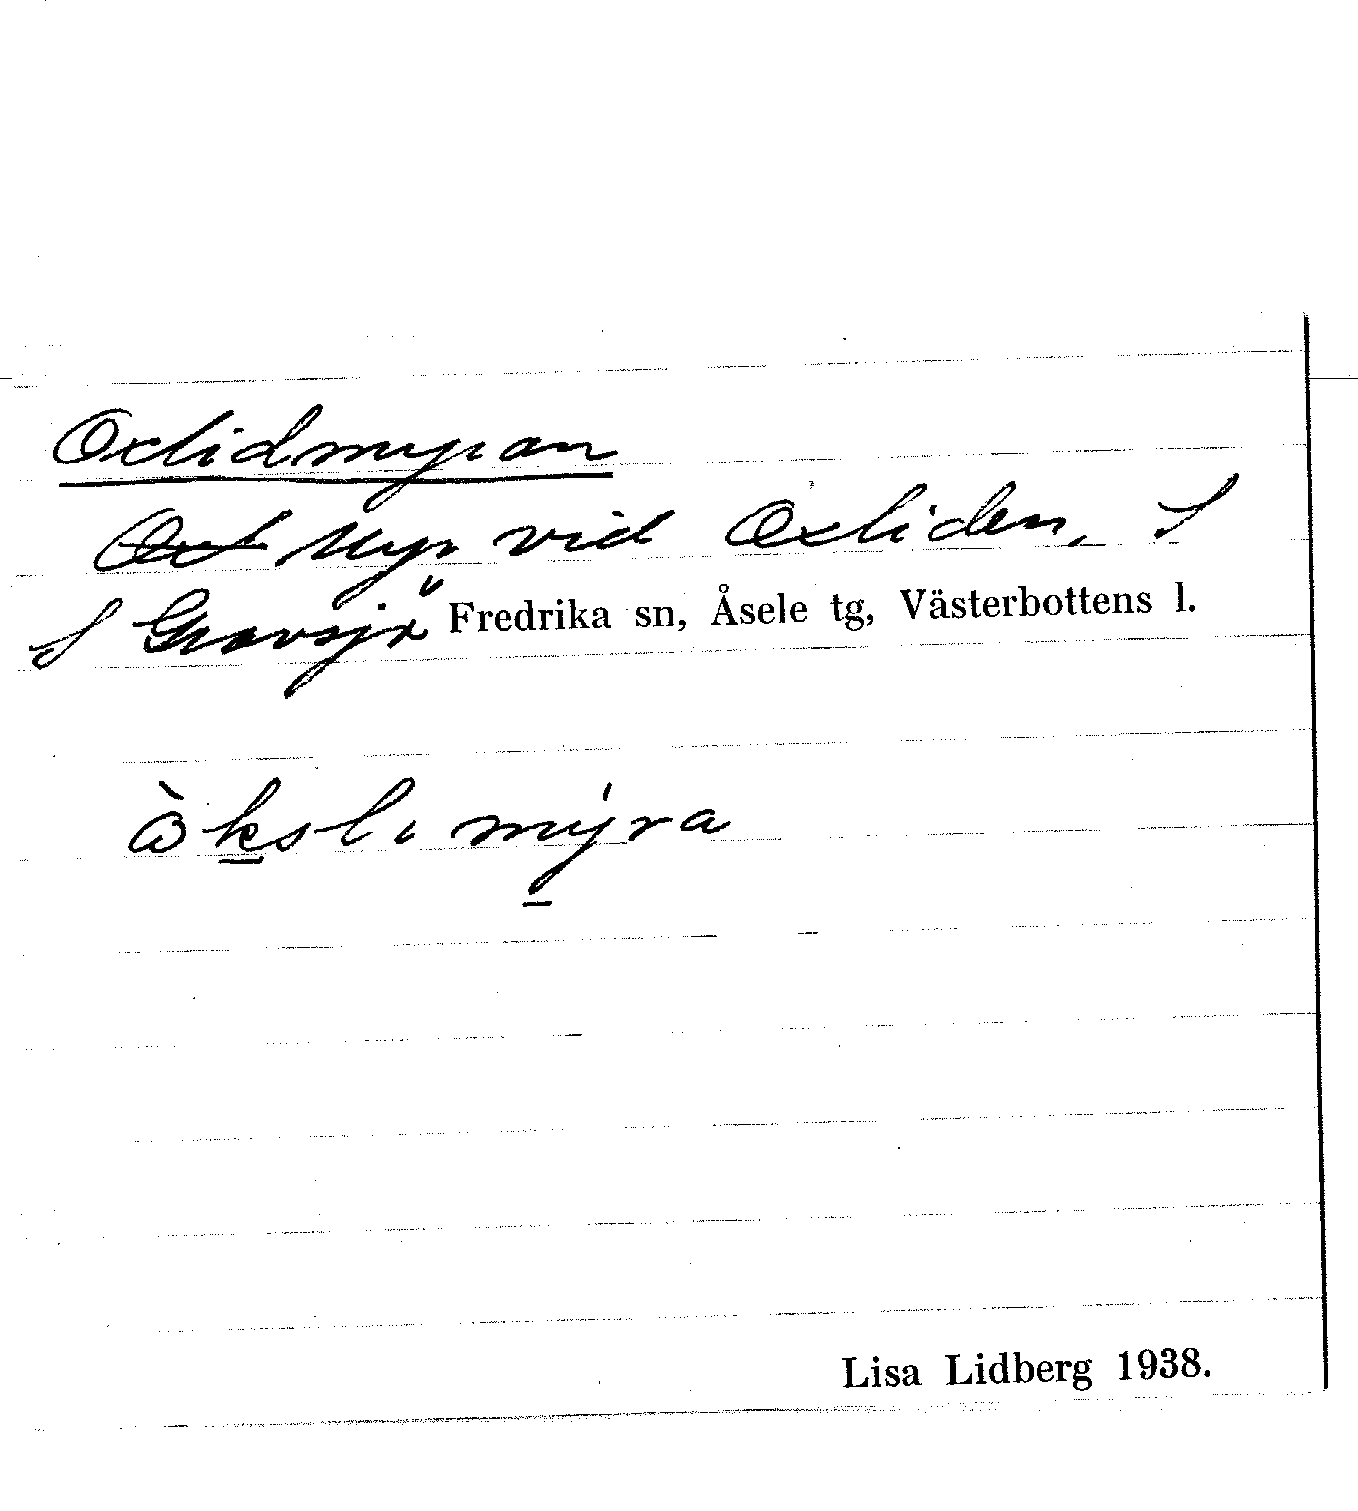 Oxlidmyran
Myr vid Oxliden, S
S Gravsjö Fredrika sn, Åsele tg, Västerbottens l.
òksli mýra
Lisa Lidberg 1938.